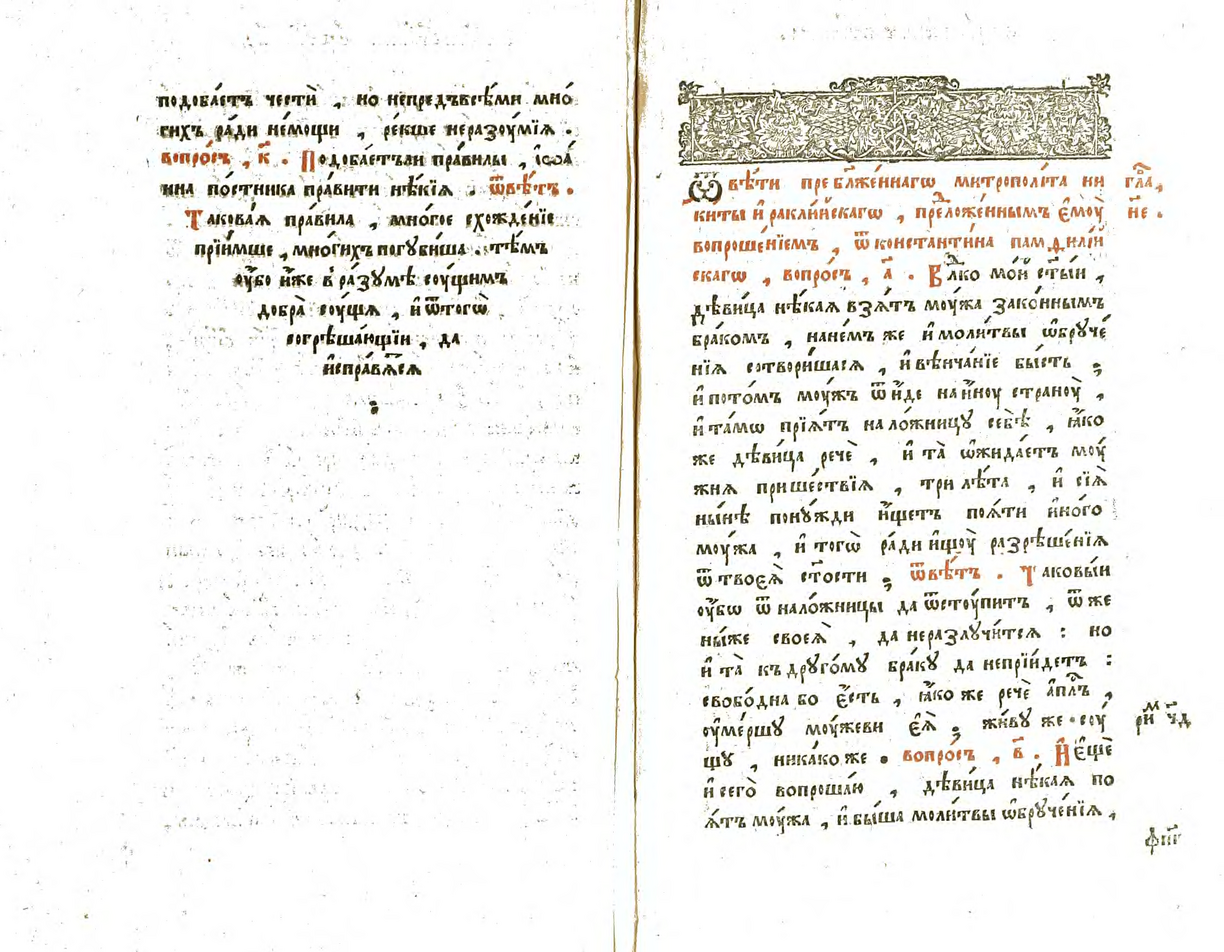 подоба́етъ че́сти , но непредъвсѣ́ми мно́
гихъ ра́ди не́мощи , ре́кше неразоу́мїѧ .
вопро́съ , к҃ . Подоба́етъли пра́вилы , і҆ѡа́
нна по́стника пра́вити нѣ́кїѧ . ѿвѣ́тъ .
Такова́ѧ пра́вила , мно́гое схожде́нїе
прїи́мше , мно́гихъ погуби́ша . тѣ́мъ
оу҆́бо и҆́же в ра́зумѣ соу́щимъ
добра̀ соу́щѧ , и҆ ѿтогѡ̀
согрѣша́ющїи , да
и҆спра́вѧтсѧ
Ѿвѣ́ти пребл҃же́ннагѡ митрополи́та ни
ки́ты и҆ракли́йскагѡ , преⷣложе́ннымъ є҆моу̀
вопроше́нїемъ , ѿ константи́на памфилі́й
скагѡ , вопро́съ , а҃ . Влⷣко мо́й ст҃ы́и ,
дѣ́вица нѣ́каѧ взѧ́тъ моу́жа зако́ннымъ
бра́комъ , нане́мъ же и҆ моли́твы ѡ҆бруче́
нїѧ сотвори́шасѧ , и҆ вѣнча́нїе бы́сть ;
и҆ пото́мъ моу́жъ ѿи́де на и҆́ноу страноу̀ ,
и҆ та́мѡ прїѧ́тъ нало́жницу себѣ̀ , ꙗ҆́ко
же дѣ́вица речѐ , и҆ та̀ ѡ҆жида́етъ моу́
жнѧ прише́ствїѧ , три лѣ́та , и҆ сїѧ̀
ны́нѣ пону́жди и҆́щетъ поѧ́ти и҆но́го
моу́жа , и҆ тогѡ̀ ра́ди и҆щоу̀ разрѣше́нїѧ
ѿ твоеѧ̀ ст҃ости ; ѿвѣ́тъ . Таковы́и
оу҆́бѡ ѿ нало́жницы да ѿстоу́питъ , ѿ же
ны́же своеѧ̀ , да неразлучи́тсѧ : но
и҆ та̀ къ друго́му бра́ку да непрїи́детъ :
свобо́дна бо є҆́сть , ꙗ҆́ко же речѐ а҆пⷭ҇лъ ,
оу҆ме́ршу моу́жеви є҆ѧ̀ ; жи́ву же соу́
щу , ника́ко же . вопро́съ , в҃ . И҆ є҆щѐ
и҆ сего̀ вопроша́ю , дѣ́вица нѣ́каѧ по
ѧ́тъ моу́жа , и҆ бы́ша моли́твы ѡ҆бруче́нїѧ ,
гла҃,
н҃е .